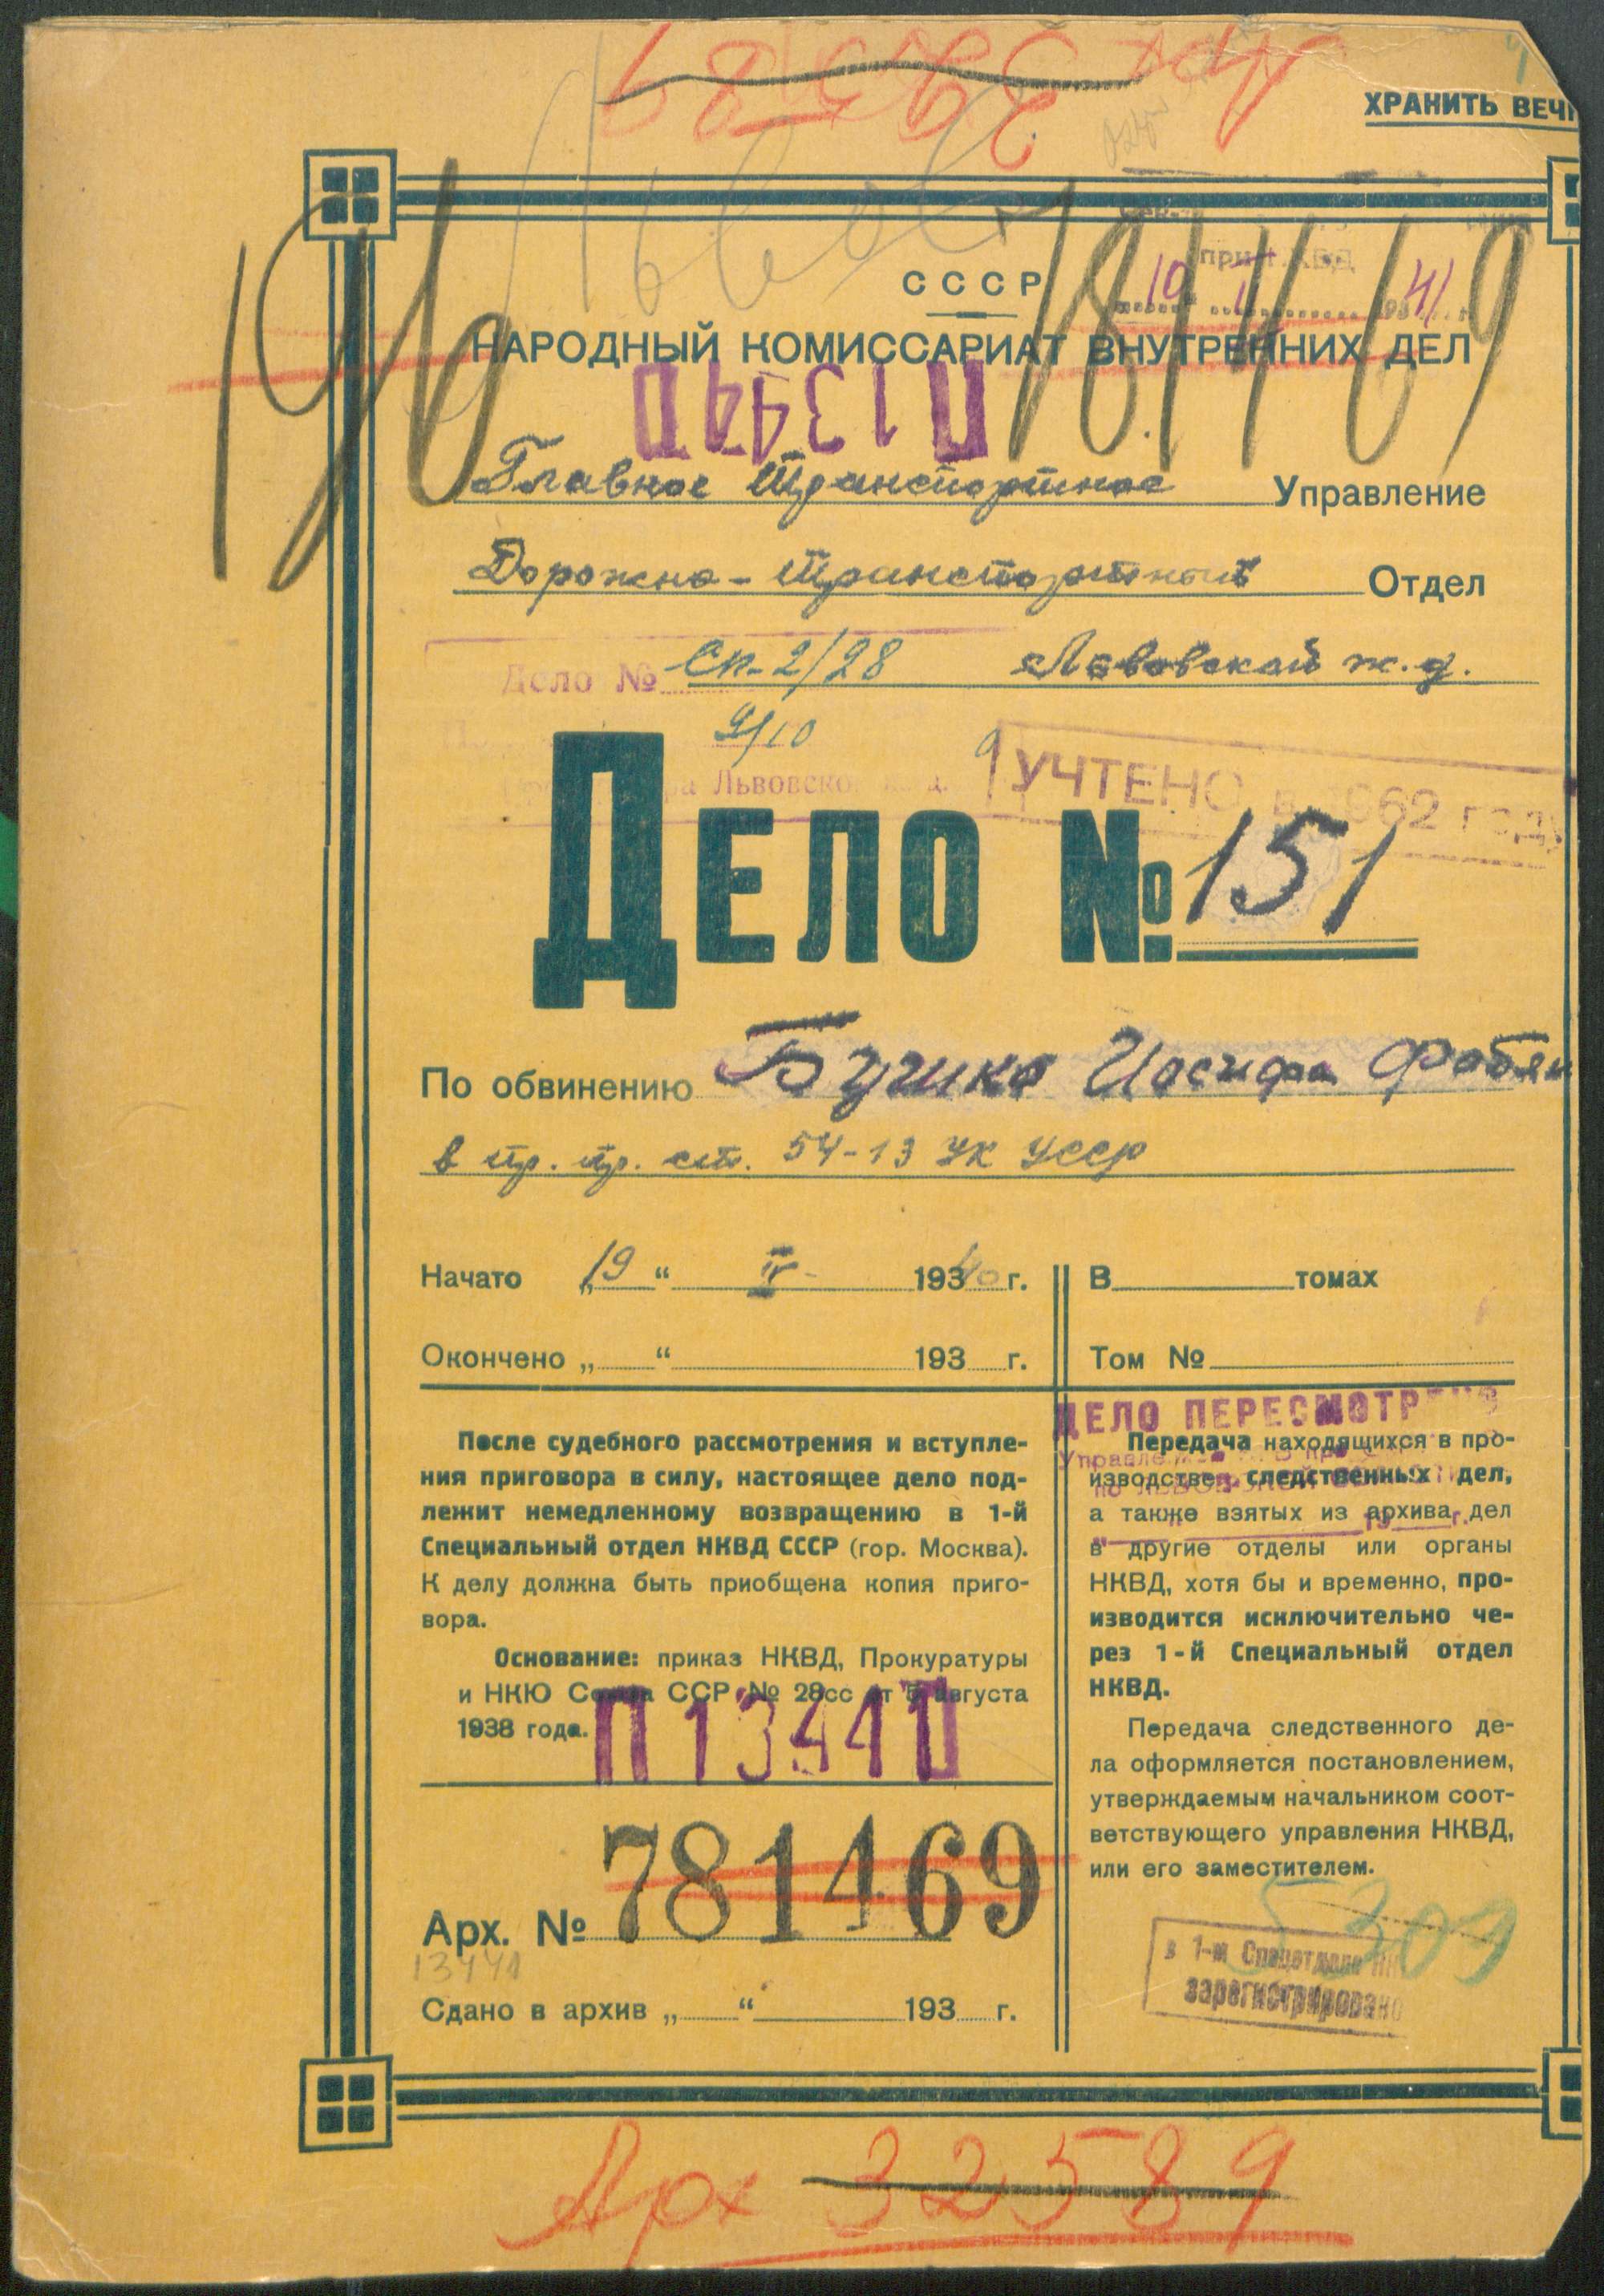 ХРАНИТЬ ВЕЧН
СССР
10 41
НАРОДНЫЙ КОМИССАРИАТ ВНУТРЕННИХ ДЕЛ
П13441
Главное Транспортное Управление
Дорожно-Транспортный Отдел
Дело № сп-2/28 Львовской ж.д.
9/10
Львовско
УЧТЕНО в 1962 году
ДЕЛО № 151
По обвинению Бучико Иосифа Фабян
в пр. пр. ст. 54-13 УК УССР
Начато „19“ IV 1940 г.
В томах
Окончено „ “ 193 г.
Том №
ДЕЛО ПЕРЕСМОТРЕНО
После судебного рассмотрения и вступле-
ния приговора в силу, настоящее дело под-
лежит немедленному возвращению в 1-й
Специальный отдел НКВД СССР (гор. Москва).
К делу должна быть приобщена копия приго-
вора.
Основание: приказ НКВД, Прокуратуры
и НКЮ Союза ССР № 28сс от 5 августа
1938 года.
П13441
Передача находящихся в про-
изводстве следственных дел,
а также взятых из архива дел
в другие отделы или органы
НКВД, хотя бы и временно, про-
изводится исключительно че-
рез 1-й Специальный отдел
НКВД.
Передача следственного де-
ла оформляется постановлением,
утверждаемым начальником соот-
ветствующего управления НКВД,
или его заместителем.
Арх. № 781469
13441
Сдано в архив „ “ 193 г.
5309
в 1-м Спецотделе НК
зарегистрировано
Арх 32589